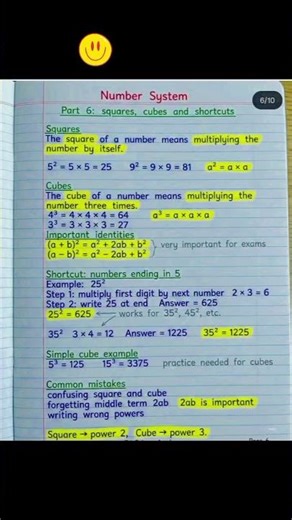 Number System
6/10
Part 6: squares, cubes and shortcuts
Squares
The square of a number means multiplying the
number by itself.
5² = 5 × 5 = 25 9² = 9 × 9 = 81 a² = a × a
Cubes
The cube of a number means multiplying the
number three times.
4³ = 4 × 4 × 4 = 64 a³ = a × a × a
3³ = 3 × 3 × 3 = 27
Important identities
(a + b)² = a² + 2ab + b²
(a – b)² = a² – 2ab + b²
very important for exams
Shortcut: numbers ending in 5
Example: 25²
Step 1: multiply first digit by next number 2 × 3 = 6
Step 2: write 25 at end Answer = 625
25² = 625 ← works for 35², 45², etc.
35² 3 × 4 = 12 Answer = 1225 35² = 1225
Simple cube example
5³ = 125 15³ = 3375 practice needed for cubes
Common mistakes
confusing square and cube
forgetting middle term 2ab 2ab is important
writing wrong powers
Square → power 2, Cube → power 3.